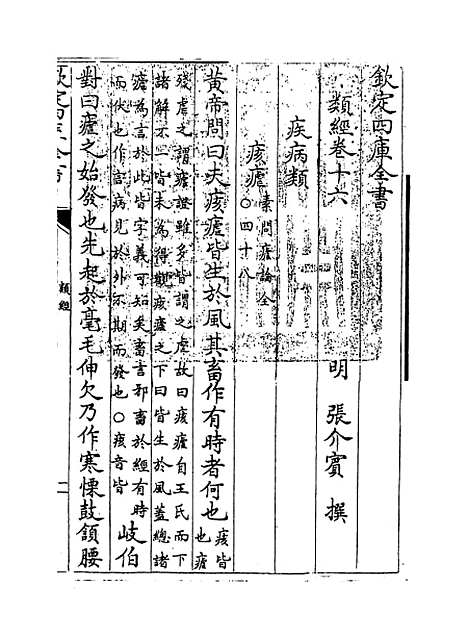 欽定四庫全書
類經卷十六
明 張介賓 撰
疾病類
痎瘧 素問瘧論全
○四十八
黃帝問曰夫痎瘧皆生於風其畜作有時者何也 痎皆
也瘧
殘虐之謂瘧證雖多皆謂之虐故曰痎瘧自王氏而下
諸解不一皆未為得觀痎瘧之下曰皆生於風蓋總諸
瘧為言於此皆字義可知矣畜言邪畜於經有時
而伏也作言病見於外不期而發也○痎音皆 岐伯
對曰瘧之始發也先起於毫毛伸欠乃作寒慄鼓頷腰
欽定四庫全書
類經
二